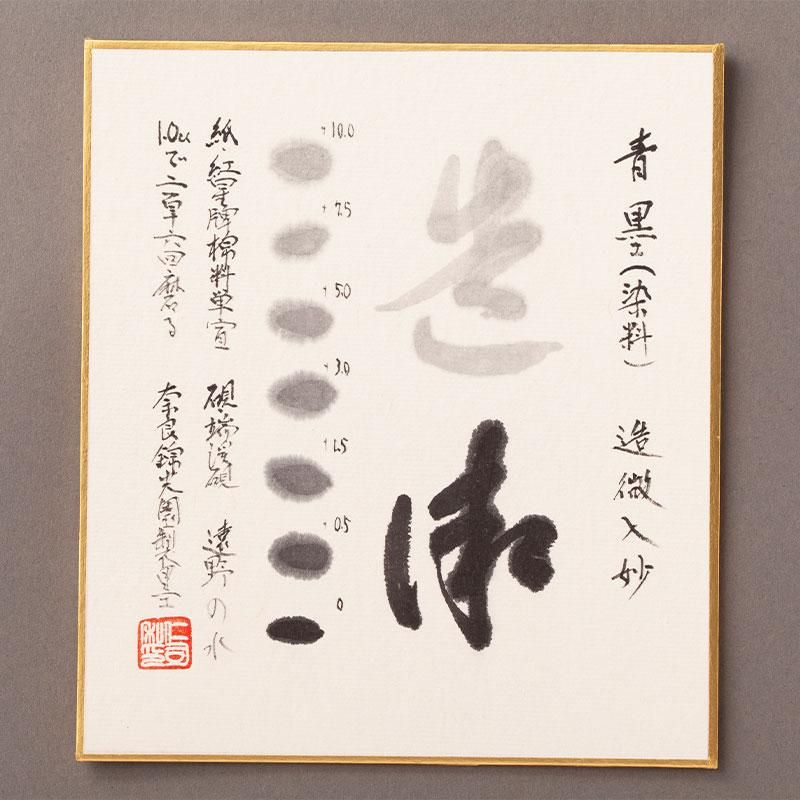 青墨(染料) 造微入妙
造
微
+10.0
+7.5
+5.0
+3.0
+1.5
+0.5
0
紙・紅星牌棉料単宣 硯・端渓硯 遠野の水
1.0ccで 回磨る 奈良錦光園製墨